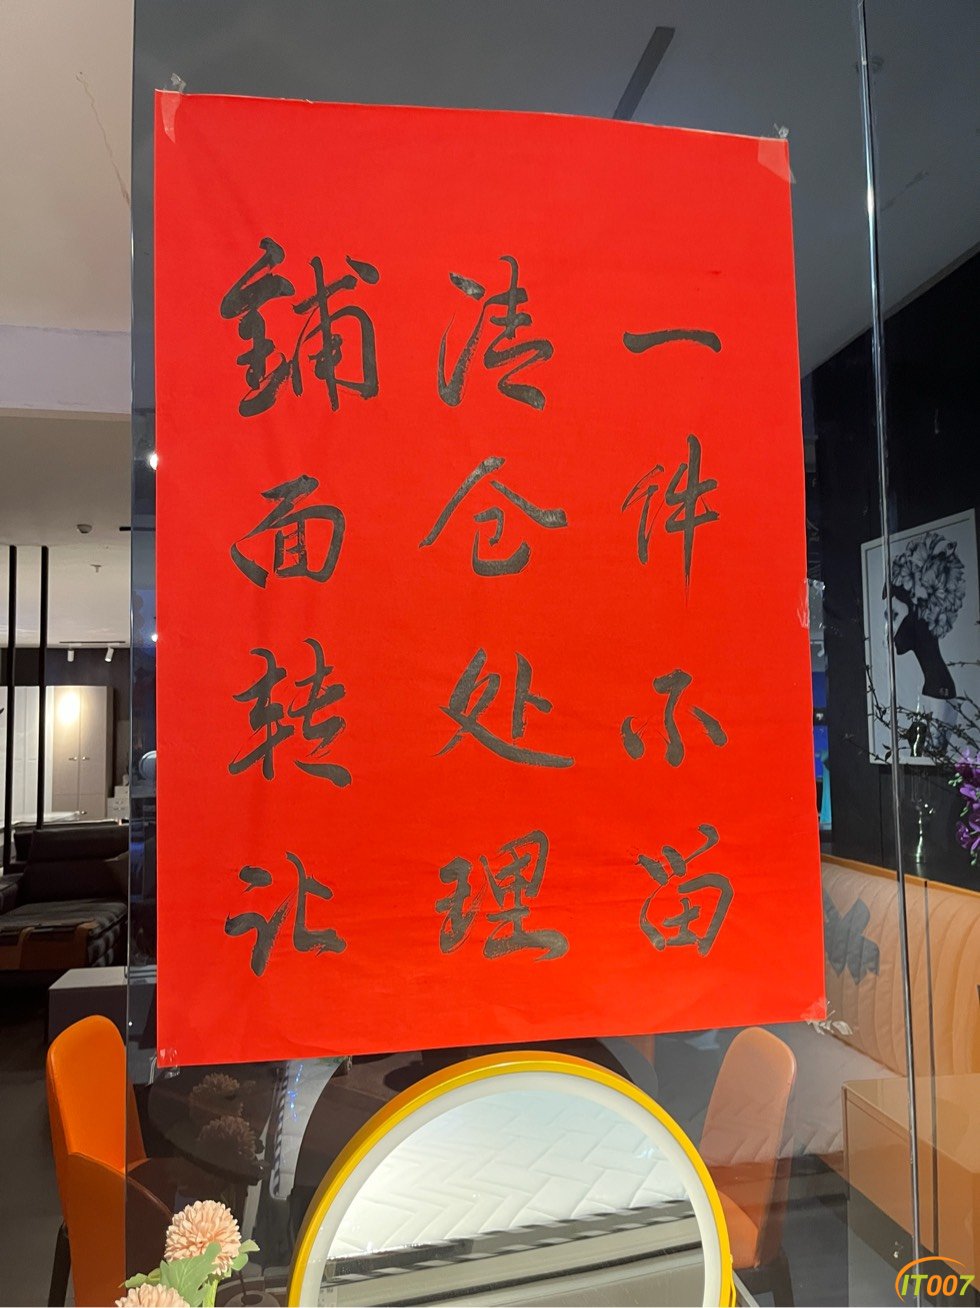 一件不留
清仓处理
鋪面转让
IT007